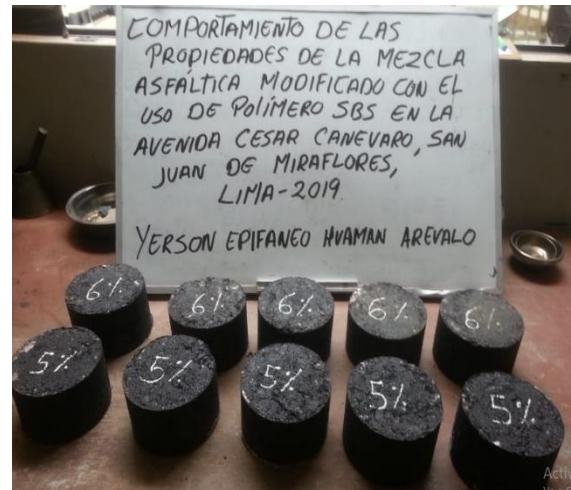 COMPORTAMIENTO DE LAS
PROPIEDADES DE LA MEZCLA
ASFÁLTICA MODIFICADO CON EL
USO DE POLÍMERO SBS EN LA
AVENIDA CESAR CANEVARO, SAN
JUAN DE MIRAFLORES,
LIMA-2019.
YERSON EPIFANEO HUAMAN AREVALO
6% 6% 6% 6% 6%
5% 5% 5% 5% 5%